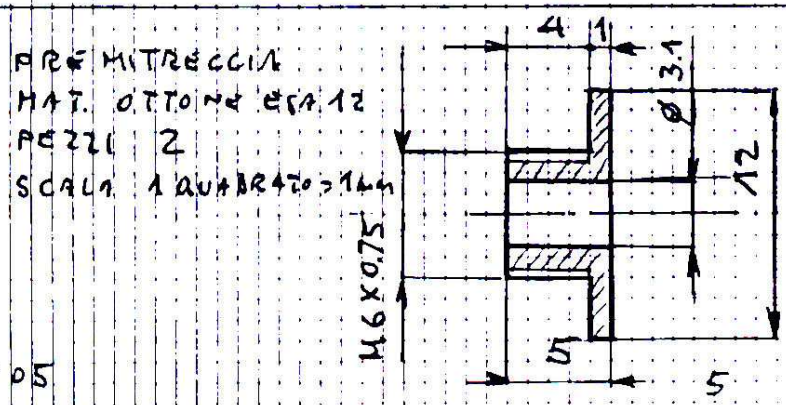 PREMITRECCIA
MAT. OTTONE ESA 12
PEZZI 2
SCALA 1 QUADRATO = 1mm
4
1
Ø 3.1
12
M6 X 0.75
5
5
05